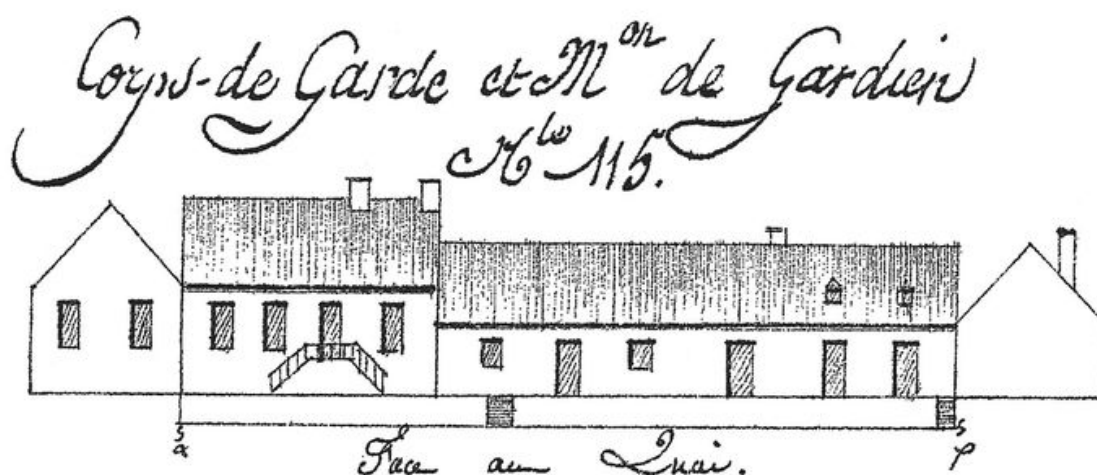 Corps-de Garde et Mon de Gardien
Nto 115.
Face au Quai.